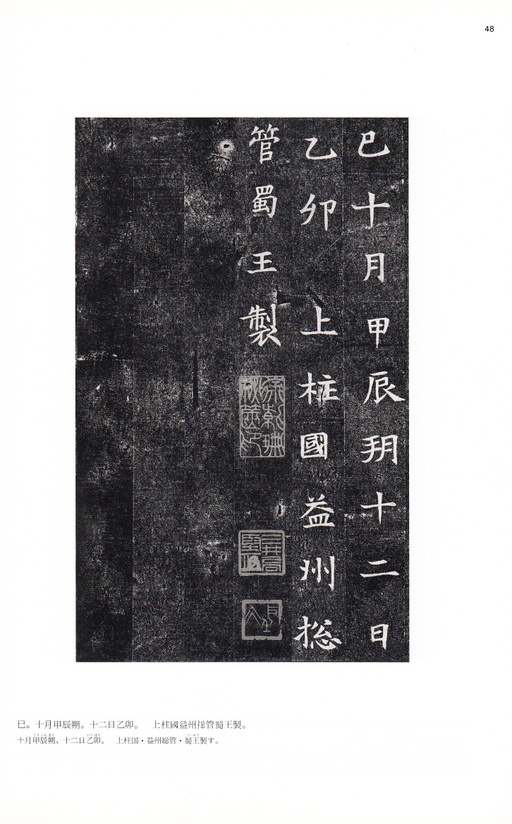 48
巳十月甲辰朔十二日
乙卯 上柱國益州揔
管蜀王製
巳。十月甲辰朔。十二日乙卯。 上柱國益州揔管蜀王製。
十月甲辰朔、十二日乙卯。 上柱国・益州総管・蜀王製す。